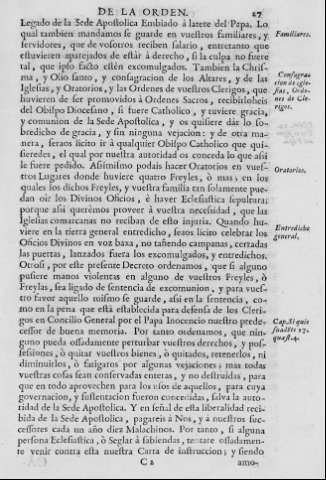 DE LA ORDEN. 27
Legado de la Sede Apostolica Embiado á latere del Papa. Lo
qual tambien mandamos se guarde en vuestros familiares, y
servidores, que de vosotros reciben salario, entretanto que
estuvieren aparejados de estár à derecho, si la culpa no fuere
tal, que ipso facto estèn excomulgados. Tambien la Chris-
ma, y Olio santo, y consagracion de los Altares, y de las
Iglesias, y Oratorios, y las Ordenes de vuestros Clerigos, que
huvieren de ser promovidos à Ordenes Sacros, recibirlosheis
del Obispo Diocesano, si fuere Catholico, y tuviere gracia,
y comunion de la Sede Apostolica, y os quisiere dár lo so-
bredicho de gracia, y sin ninguna vejacion: y de otra ma-
nera, seraos licito ir à qualquier Obispo Catholico que qui-
sieredes, el qual por nuestra autoridad os conceda lo que asi
le fuere pedido. Assimismo podais hacer Oratorios en vues-
tros Lugares donde huviere quatro Freyles, ò mas, en los
quales los dichos Freyles, y vuestra familia tan solamente pue-
dan oir los Divinos Oficios, è haver Eclesiastica sepultura:
porque asi queremos proveer à vuestra necesidad, que las
Iglesias comarcanas no reciban de esto injuria. Quando hu-
viere en la tierra general entredicho, seaos licito celebrar los
Oficios Divinos en voz baxa, no tañendo campanas, cerradas
las puertas, lanzados fuera los excomulgados, y entredichos.
Otrosi, por este presente Decreto ordenamos, que si alguno
pusiere manos violentas en alguno de vuestros Freyles, ò
Freylas, sea ligado de sentencia de excomunion, y para vues-
tro favor aquello mismo se guarde, asi en la sentencia, co-
mo en la pena que està establecida para defensa de los Cleri-
gos en Concilio General por el Papa Inocencio nuestro prede-
cessor de buena memoria. Por tanto ordenamos, que nin-
guno pueda ossadamente perturbar vuestros derechos, y pos-
sessiones, ò quitar vuestros bienes, ò quitados, retenerlos, ni
diminuirlos, ò fatigaros por algunas vejaciones; mas todas
vuestras cosas sean conservadas enteras, y no destruidas, para
que en todo aprovechen para los usos de aquellos, para cuya
governacion, y sustentacion fueron concedidas, salva la auto-
ridad de la Sede Apostolica. Y en señal de esta liberalidad reci-
bida de la Sede Apostolica, pagareis à Nos, y à nuestros suc-
cessores cada un año diez Malachinos. Por tanto, si alguna
persona Eclesiastica, ò Seglar à sabiendas, tentare ossadamen-
te venir contra esta nuestra Carta de instruccion; y siendo
C 2 amo-
Familiares.
Consagra-
cion de igle-
sias, Orde-
nes de Cle-
rigos.
Oratorios.
Entredicho
general.
Cap. Si quis
suadente 17.
quæst. 4.